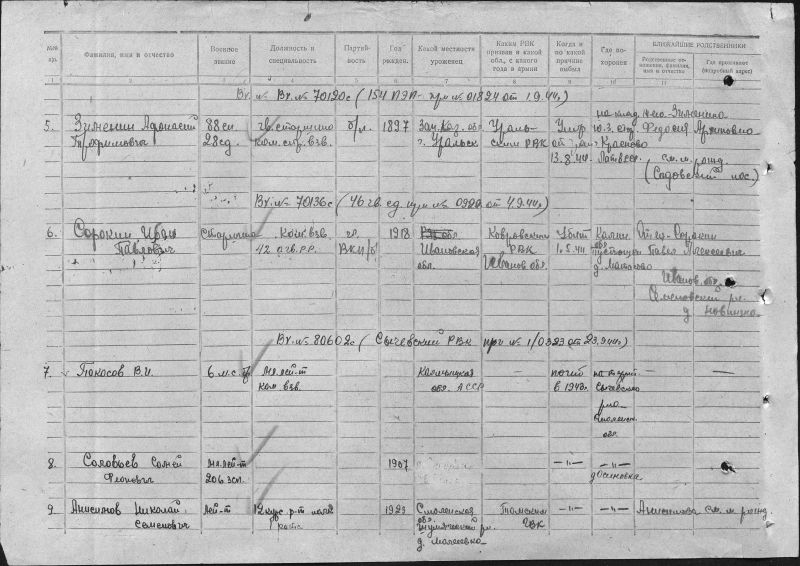 №№ пр.
Фамилия, имя и отчество
Военное звание
Должность и специальность
Партийность
Год рожден.
Какой местности уроженец
Каким РВК призван и какой обл., с какого года в армии
Когда и по какой причине выбыл
Где похоронен
БЛИЖАЙШИЕ РОДСТВЕННИКИ
Родственные отношения, фамилия, имя и отчество
Где проживают (подробный адрес)
1 2 3 4 5 6 7 8 9 10 11
Вх. № 70120с (154 пр № 01824 от 1.9.44г.)
5. Зиненин Афанасий
Трофимович
88 сп
28 сд.
гв. старшина
ком. стр. взв.
б/п.
1897
Зап. Каз. обл.
г. Уральск
Ураль-
ским РВК
Умер
от ран
13.8.44
ю.з. окр.
Красново
Федосия Архиповна
см. м. рожд.
(Садовский пос.)
Вх. № 70136с (46 гв. сд пр № 0920 от 4.9.44г.)
6. Сорокин Иван
Павлович
старшина
Ком. взв.
1918
обл.
Ивановская
обл.
Ковровским
РВК
Иванов. обл.
Убит
1.5.44
Калин
обл.
Отец-Сорокин
Павел Алексеевич
Иванов. обл.
Семеновский рн.
д.
Вх. № 80602с (Сычевский РВК пр № 1/0323 от 23.9.44г.)
7. Покосов В.И.
6 м.с.
мл. лей-т
ком взв.
Калмыцкая
обл. АССР
—
погиб
в 1943г.
на террит
Сычевско
рна
Смоленск.
обл.
8. Соловьев
мл. лей-т
206 зсп.
1907
—"—
—"—
9. Анисимов Николай
Семенович
лей-т
рота
1923
Смоленская
обл.
рн.
д.
Томским
ГВК
—"—
—"—
Анисимова см. м. рожд.